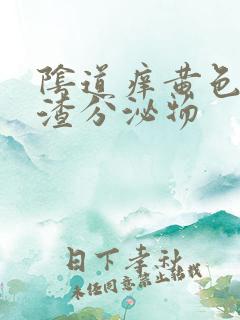 陰道痒黄色
渣分泌物
日下孝秋
未经同意禁止转载